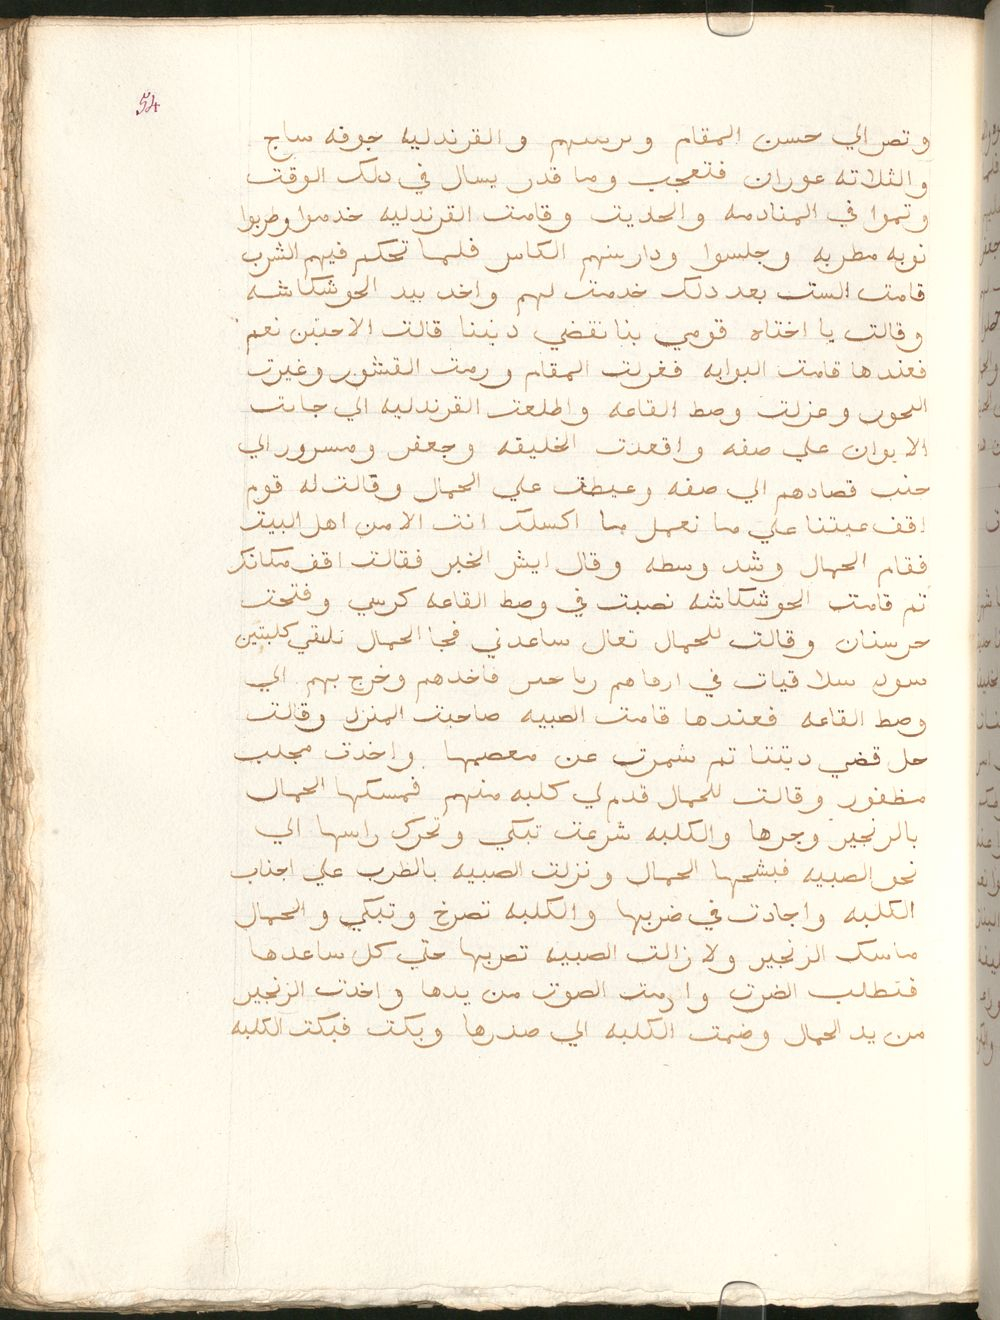 54
ونصر الي حسن المقام وترتيبهم والقرندليه جوقه ساج
والثلاته عوران فتعجب وما قدر يسال في دلك الوقت
وتموا في المنادمه والحديت وقامت القرندليه خدموا وطربوا
نوبه مطربه وجلسوا ودار بينهم الكاس فلما تحكم فيهم الشرب
قامت الست بعد دلك خدمت لهم واخد بيد الحوشكاشه
وقالت يا اختاه قومي بنا نقضي ديننا قالت الاختين نعم
فعندها قامت البوابه فغرلت المقام ورمت القشور وغيرت
البخور وعزلت وصط القاعه واطلعت القرندليه الي جانب
الايوان علي صفه واقعدت الخليفه وجعفر ومسرور الي
جنب قصادهم الي صفه وعيطت علي الحمال وقالت له قوم
اقف عيننا علي ما نعمل ما اكسلك انت الا من اهل البيت
فقام الحمال وشد وسطه وقال ايش الخبر فقالت اقف مكانك
تم قامت الحوشكاشه نصبت في وصط القاعه كرسي وفتحت
حرستان وقالت للحمال تعال ساعدني فجا الحمال تلقي كلبتين
سود سلاقيات في ارقاهم فاخدهم وخرج بهم الي
وصط القاعه فعندها قامت الصبيه صاحبت المنزل وقالت
حل قضي ديننا تم شمرت عن معصمها واخدت مجلب
مظفور وقالت للحمال قدم لي كلبه منهم فمسكها الحمال
بالزنجير وجرها والكلبه شرعت تبكي وتحرك راسها الي
نحو الصبيه فبشحها الحمال ونزلت الصبيه بالظرب علي اجناب
الكلبه واجادت في ضربها والكلبه تصرخ وتبكي والحمال
ماسك الزنجير ولا زالت الصبيه تضربها حتي كل ساعدها
فبطلب الضرب وارمت الصوت من يدها واخدت الزنجير
من يد الحمال وضمت الكلبه الي صدرها وبكت فبكت الكلبه